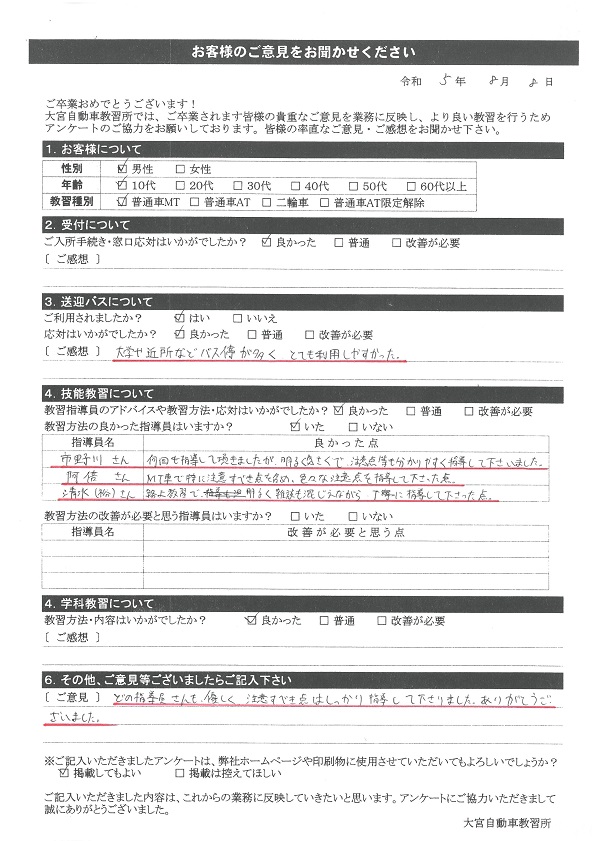 お客様のご意見をお聞かせください
令和 5年 8月 8日
ご卒業おめでとうございます！
大宮自動車教習所では、ご卒業されます皆様の貴重なご意見を業務に反映し、より良い教習を行うため
アンケートのご協力をお願いしております。皆様の率直なご意見・ご感想をお聞かせ下さい。
1. お客様について
性別 ☑ 男性 □ 女性
年齢 ☑ 10代 □ 20代 □ 30代 □ 40代 □ 50代 □ 60代以上
教習種別 ☑ 普通車MT □ 普通車AT □ 二輪車 □ 普通車AT限定解除
2. 受付について
ご入所手続き・窓口応対はいかがでしたか？ ☑ 良かった □ 普通 □ 改善が必要
〔 ご感想 〕
3. 送迎バスについて
ご利用されましたか？ ☑ はい □ いいえ
応対はいかがでしたか？ ☑ 良かった □ 普通 □ 改善が必要
〔 ご感想 〕 大学や近所などバス停が多く とても利用しやすかった。
4. 技能教習について
教習指導員のアドバイスや教習方法・応対はいかがでしたか？ ☑ 良かった □ 普通 □ 改善が必要
教習方法の良かった指導員はいますか？ ☑ いた □ いない
指導員名 良かった点
市野川 さん 何回も指導して頂きましたが、明るく気さくで、注意点等も分かりやすく指導して下さいました。
阿倍 さん MT車で特に注意すべき点を含め、色々な注意点を指導して下さった点。
清水(裕)さん 路上教習で、明るく雑談も混じえながら 丁寧に指導して下さった点。
教習方法の改善が必要と思う指導員はいますか？ □ いた □ いない
指導員名 改善が必要と思う点
4. 学科教習について
教習方法・内容はいかがでしたか？ ☑ 良かった □ 普通 □ 改善が必要
〔 ご感想 〕
6. その他、ご意見等ございましたらご記入下さい
〔 ご意見 〕 どの指導員さんも、優しく 注意すべき点はしっかり指導して下さりました。ありがとうご
ざいました。
※ご記入いただきましたアンケートは、弊社ホームページや印刷物に使用させていただいてもよろしいでしょうか？
☑ 掲載してもよい □ 掲載は控えてほしい
ご記入いただきました内容は、これからの業務に反映していきたいと思います。アンケートにご協力いただきまして
誠にありがとうございました。
大宮自動車教習所